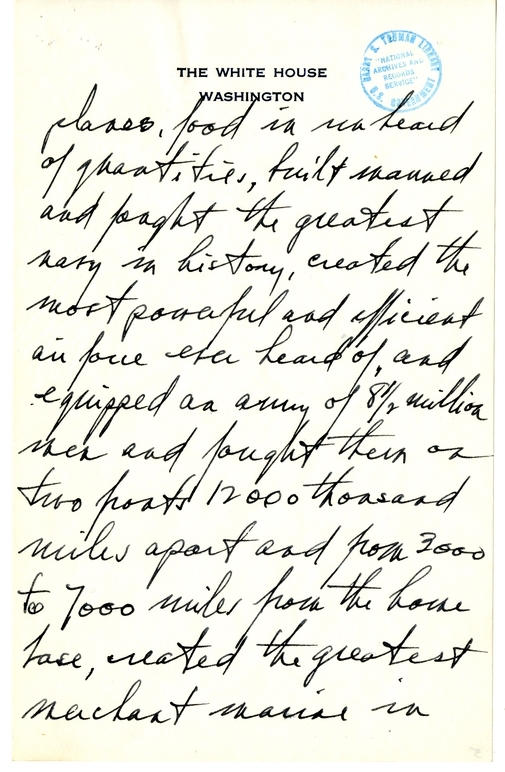 THE WHITE HOUSE
WASHINGTON
HARRY S. TRUMAN LIBRARY
"NATIONAL
ARCHIVES AND
RECORDS
SERVICE"
U.S. GOVERNMENT
planes, food in unheard
of quantities, built manned
and fought the greatest
navy in history, created the
most powerful and efficient
air force ever heard of, and
equipped an army of 8½ million
men and fought them on
two fronts 12000 thousand
miles apart and from 3000
to 7000 miles from the home
base, created the greatest
merchant marine in